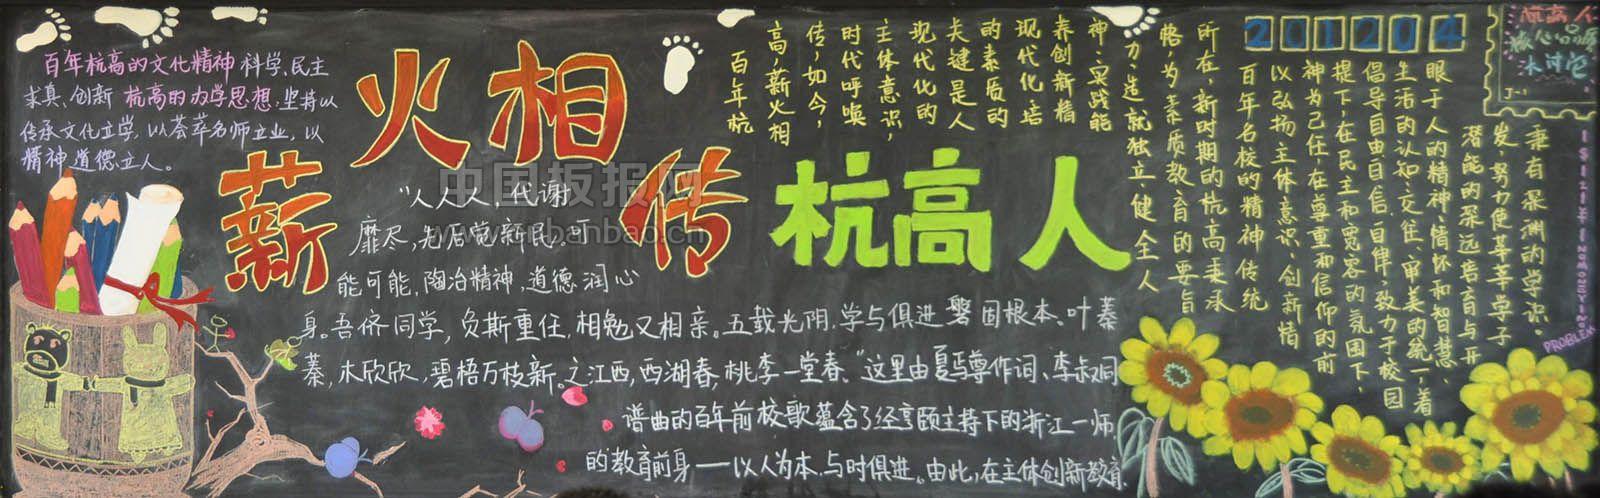 百年杭高的文化精神科学、民主
求真、创新 杭高的办学思想:坚持以
传承文化立学,以荟萃名师立业,以
精神道德立人。
薪火相传
杭高人
"人人人,代谢
靡尽,先后觉新民,可
能可能,陶冶精神,道德润心
身。吾侪同学,负斯重任,相勉又相亲。五载光阴,学与俱进磐固根本。叶蓁
蓁,木欣欣,碧梧万枝新。之江西,西湖春,桃李一堂春。"这里由夏丏尊作词、李叔同
谱曲的百年前校歌蕴含了经亨颐主持下的浙江一师
的教育前身——以人为本、与时俱进。由此,在主体创新教育
百年杭
高,薪火相
传,如今,
时代呼唤
主体意识,
现代化的
关键是人
的素质的
现代化培
养创新精
神、实践能
力、造就独立、健全人
格为素质教育的要旨
所在,新时期的杭高秉承
百年名校的精神传统
以弘扬主体意识、创新情
神为己任,在尊重和信仰的前
提下,在民主和宽容的氛围下,
倡导自由自信、自律,致力于校园
生活的认知、交往、审美的统一,着
眼于人的精神、情怀和智慧、
潜能的深远培育与开
发,努力使莘莘学子
秉有深渊的学识。
201204
杭高人
核心品质
大讨论
PROBLEM
中国板报网
www.cnbanbao.cn